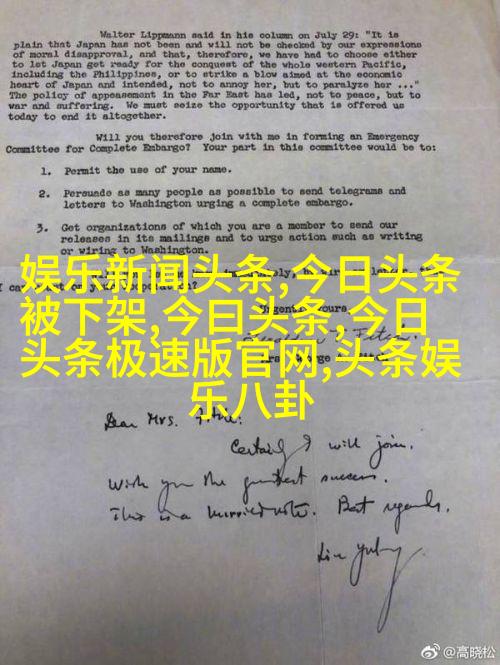 Walter Lippmann said in his column on July 29: "It is
plain that Japan has not been and will not be checked by our expressions
of moral disapproval, and that, therefore, we have had to choose either
to let Japan get ready for the conquest of the whole western Pacific,
including the Philippines, or to strike a blow aimed at the economic
heart of Japan and intended, not to annoy her, but to paralyze her ..."
The policy of appeasement in the Far East has led, not to peace, but to
war and suffering. We must seize the opportunity that is offered us
today to end it altogether.
Will you therefore join with me in forming an Emergency
Committee for Complete Embargo? Your part in this committee would be to:
1. Permit the use of your name.
2. Persuade as many people as possible to send telegrams and
letters to Washington urging a complete embargo.
3. Get organizations of which you are a member to send our
releases in its mailings and to urge action such as writing
or wiring to Washington.
娱乐新闻头条,今日头条
被下架,今曰头条,今日
头条极速版官网,头条娱
乐八卦
Dear Mrs. Fitch:
Certainly I will join.
Wish you the greatest success.
This is a hurried note. Best regards.
Lin Yutang
@高晓松